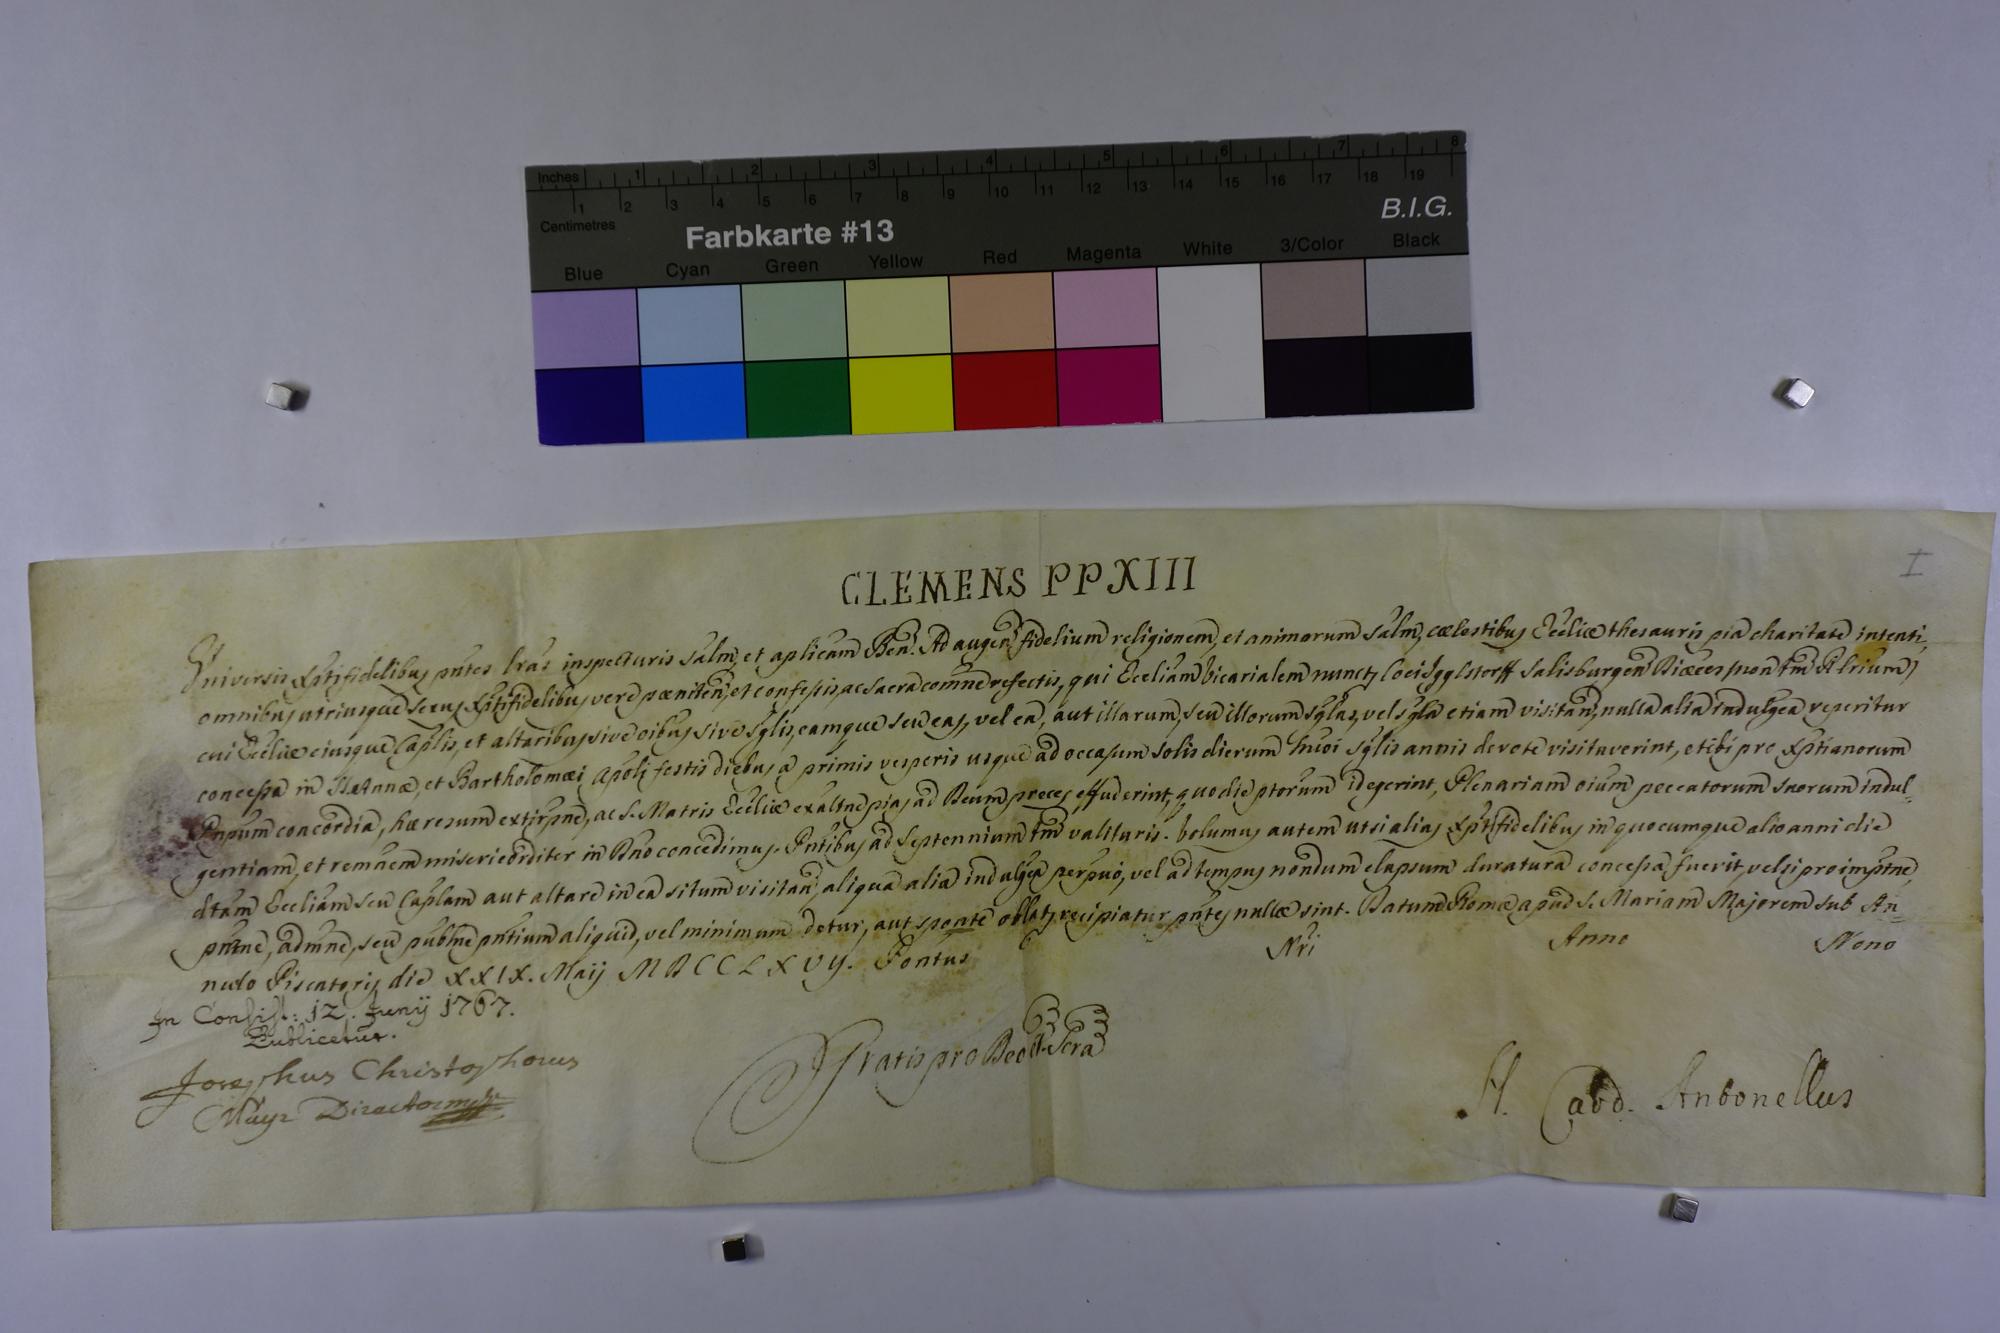 Inches 1 2 3 4 5 6 7 8
1 2 3 4 5 6 7 8 9 10 11 12 13 14 15 16 17 18 19
Centimetres
Farbkarte #13
B.I.G.
Blue Cyan Green Yellow Red Magenta White 3/Color Black
I
CLEMENS PP XIII
Universis Xptifidelibus pntes lras inspecturis salm, et aplicam Ben. Ad augen fidelium religionem, et animorum salm, coelestibus Eccliae thesauris pia charitate intenti,
omnibus utriusque sexus Xptifidelibus vere poeniten, et confessis, ac sacra comne refectis, qui Eccliam Vicarialem nuncup loci Salisburgen Dioeces
cui Eccliae eiusque Caplis, et altaribus sive oibus sive sglis, eamque seu eas, vel ea, aut illarum, seu illorum sglas, vel sgla etiam visitan, nulla alia indulgea reperitur
concessa in S. Annae, et Bartholomaei Apoli festis diebus a primis vesperis usque ad occasum solis dierum huoi sglis annis devote visitaverint, et ibi pro Xptianorum
Pnpum concordia, haeresum extirpne, ac S. Matris Eccliae exaltne pias ad Deum preces effuderint, quo die ptorum id egerint, Plenariam oium peccatorum suorum indul-
gentiam, et remnem misericorditer in Dno concedimus. Pntibus ad Septennium tm valituris. Volumus autem ut si alias Xptifidelibus in quocumque alio anni die
dtam Eccliam seu Caplam aut altare in ea situm visitan, aliqua alia indulgea perpuo, vel ad tempus nondum elapsum duratura concessa fuerit, vel si pro impтne,
pntne, admne, seu pubne pntium aliquid, vel minimum detur, aut sponte oblatum recipiatur pntes nullae sint. Datum Romae apud S. Mariam Majorem sub An-
nulo Piscatoris die XXIX. Maij MDCCLXVIJ. Pontus Nri Anno Nono
In Consist: 12. Junij 1767.
Publicetur.
Josephus Christophorus
Mayr Director mpr
Gratis pro Deo et Scra
N. Card. Antonellus